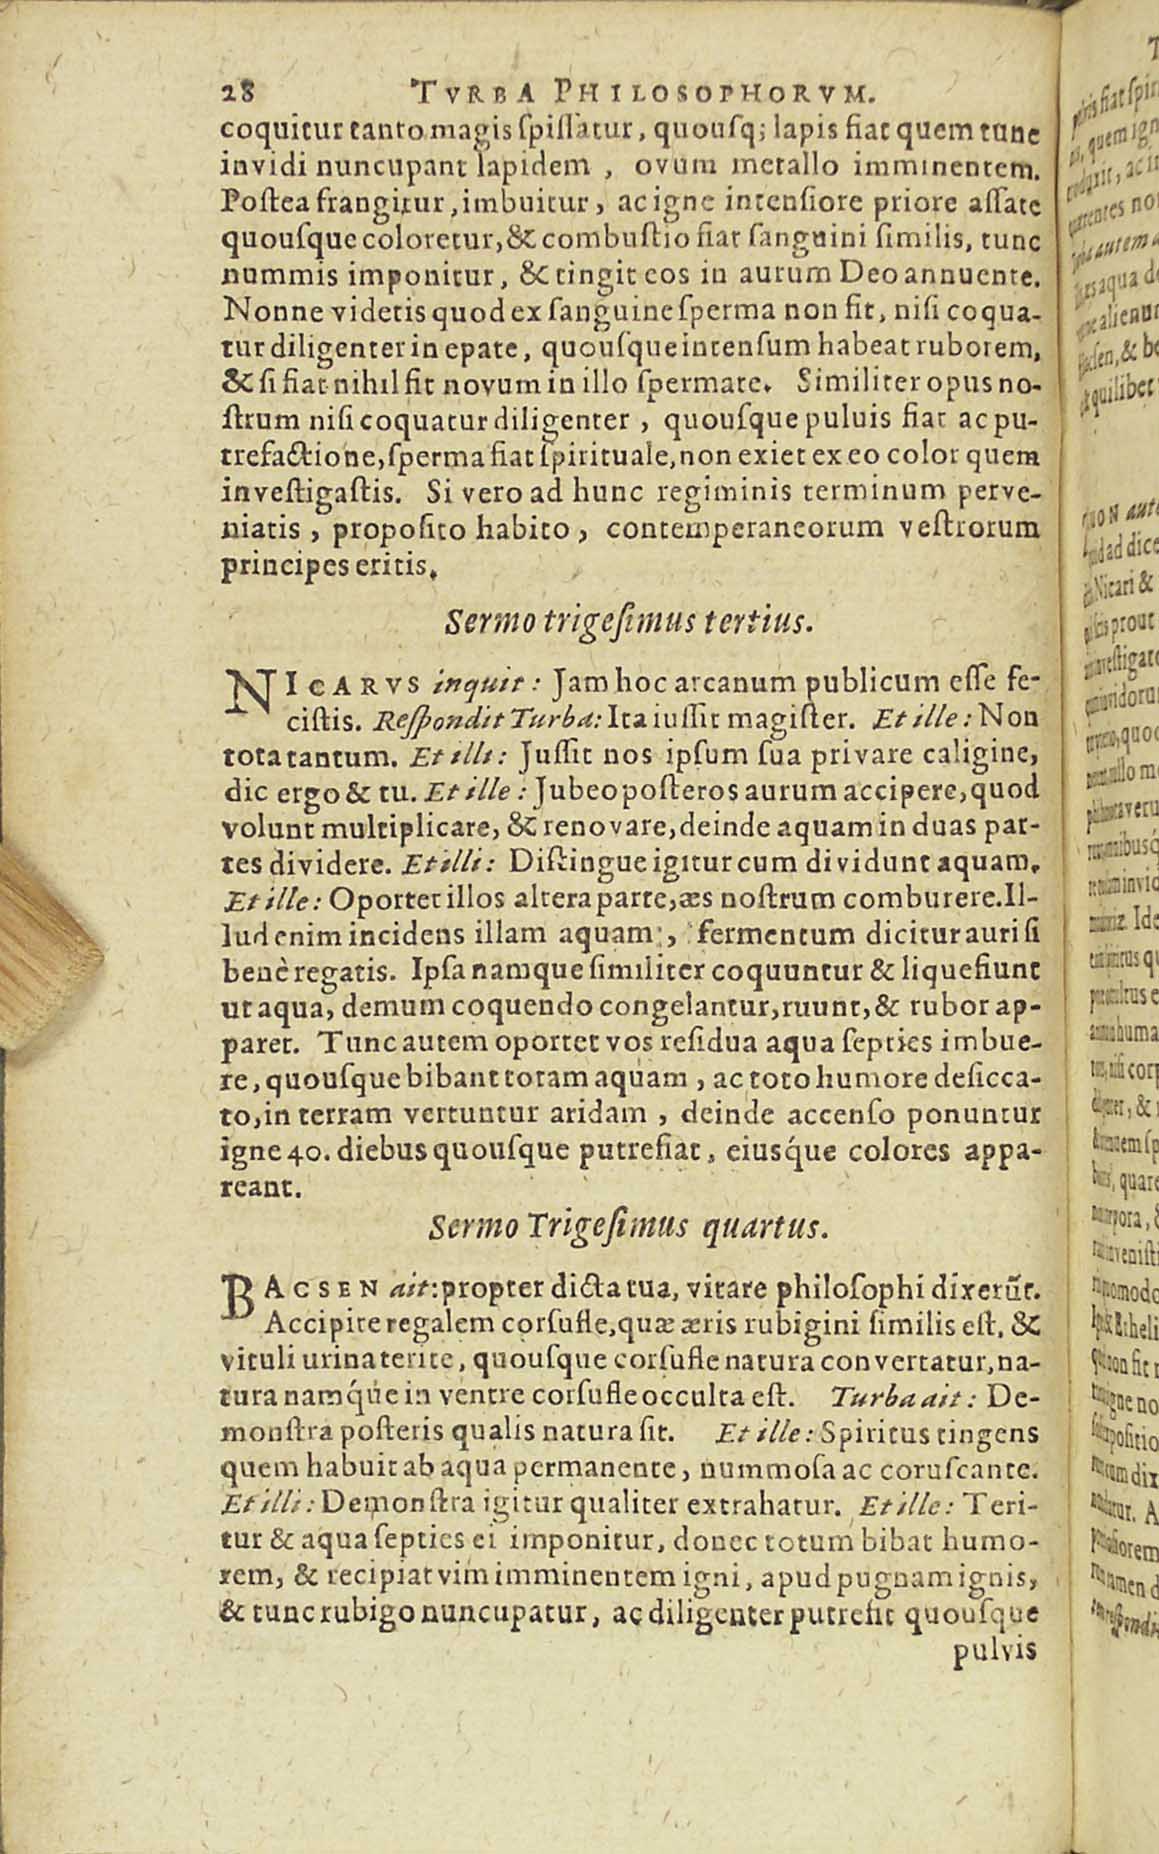 28 TVRBA PHILOSOPHORVM.
coquitur tanto magis spissatur, quousq; lapis fiat quem tunc
invidi nuncupant lapidem, ovum metallo imminentem.
Postea frangitur, imbuitur, ac igne intensiore priore assate
quousque coloretur, & combustio fiat sanguini similis, tunc
nummis imponitur, & tingit eos in aurum Deo annuente.
Nonne videtis quod ex sanguine sperma non fit, nisi coqua-
tur diligenter in epate, quousque intensum habeat ruborem,
& si fiat nihil fit novum in illo spermate. Similiter opus no-
strum nisi coquatur diligenter, quousque puluis fiat ac pu-
trefactione, sperma fiat spirituale, non exiet ex eo color quem
investigastis. Si vero ad hunc regiminis terminum perve-
niatis, proposito habito, contemperaneorum vestrorum
principes eritis.
Sermo trigesimus tertius.
NICARVS inquit: Jam hoc arcanum publicum esse fe-
cistis. Respondit Turba: Ita iussit magister. Et ille: Non
tota tantum. Et illi: Jussit nos ipsum sua privare caligine,
dic ergo & tu. Et ille: Jubeo posteros aurum accipere, quod
volunt multiplicare, & renovare, deinde aquam in duas par-
tes dividere. Et illi: Distingue igitur cum dividunt aquam.
Et ille: Oportet illos altera parte, æs nostrum comburere. Il-
lud enim incidens illam aquam, fermentum dicitur auri si
benè regatis. Ipsa namque similiter coquuntur & liquefiunt
ut aqua, demum coquendo congelantur, ruunt, & rubor ap-
paret. Tunc autem oportet vos residua aqua septies imbue-
re, quousque bibant totam aquam, ac toto humore desicca-
to, in terram vertuntur aridam, deinde accenso ponuntur
igne 40. diebus quousque putrefiat, eiusq́ue colores appa-
reant.
Sermo Trigesimus quartus.
BACSEN ait: propter dicta tua, vitare philosophi dixerũt.
Accipite regalem corsufle, quæ æris rubigini similis est, &
vituli urina terite, quousque corsufle natura convertatur, na-
tura namq́ue in ventre corsufle occulta est. Turba ait: De-
monstra posteris qualis natura sit. Et ille: Spiritus tingens
quem habuit ab aqua permanente, nummosa ac coruscante.
Et illi: Demonstra igitur qualiter extrahatur. Et ille: Teri-
tur & aqua septies ei imponitur, donec totum bibat humo-
rem, & recipiat vim imminentem igni, apud pugnam ignis,
& tunc rubigo nuncupatur, ac diligenter putrefit quousque
pulvis